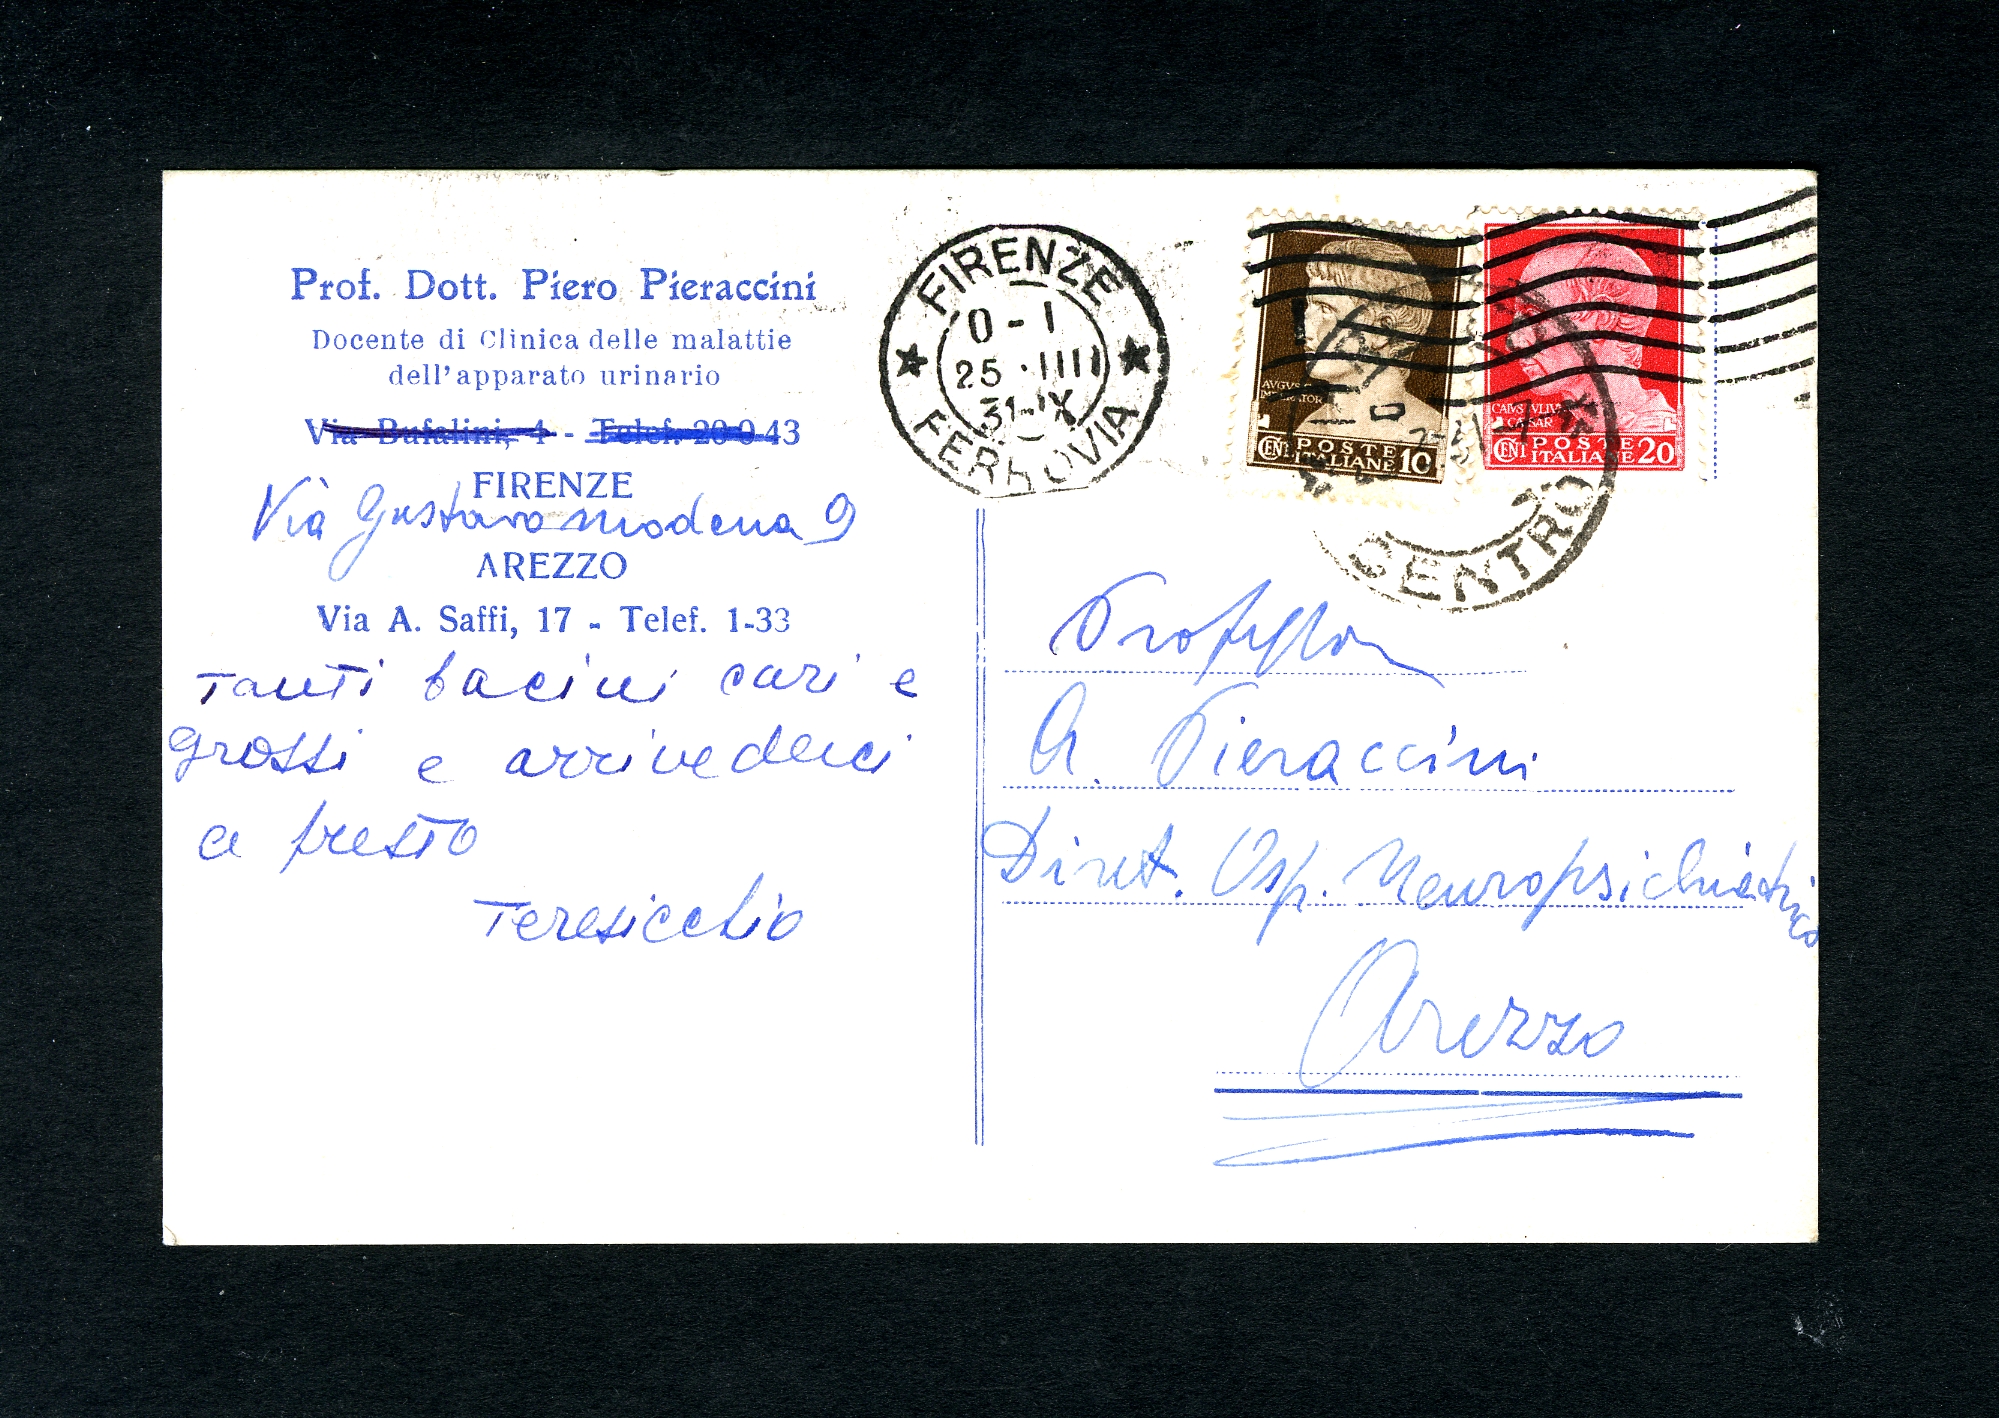 Prof. Dott. Piero Pieraccini
Docente di Clinica delle malattie
dell'apparato urinario
Via Bufalini, 4 - Telef. 20-9-43
FIRENZE
Via Gustavo Modena 9
AREZZO
Via A. Saffi, 17 - Telef. 1-33
Tanti bacini cari e
grossi e arrivederci
a presto
Teresicchio
FIRENZE
0-1
25 · III
31-IX
FERROVIA
AVGVS
IMPERATOR
CENT POSTE ITALIANE 10
CAIVS IVLIVS
CAESAR
CENT POSTE ITALIANE 20
CENTRO
A. Pieraccini
Diret. Osp. Neuropsichiatrico
Arezzo